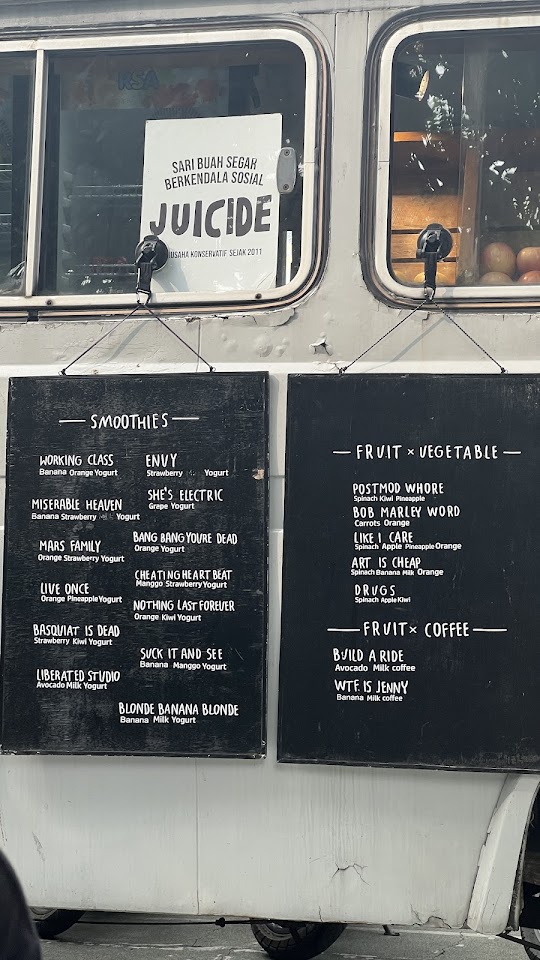 RSA
SARI BUAH SEGAR
BERKENDALA SOSIAL
JUICIDE
USAHA KONSERVATIF SEJAK 2011
SMOOTHIES
WORKING CLASS
Banana Orange Yogurt
MISERABLE HEAVEN
Banana Strawberry Milk Yogurt
MARS FAMILY
Orange Strawberry Yogurt
LIVE ONCE
Orange Pineapple Yogurt
BASQUIAT IS DEAD
Strawberry Kiwi Yogurt
LIBERATED STUDIO
Avocado Milk Yogurt
ENVY
Strawberry Yogurt
SHE'S ELECTRIC
Grape Yogurt
BANG BANG YOURE DEAD
Orange Yogurt
CHEATING HEART BEAT
Manggo Strawberry Yogurt
NOTHING LAST FOREVER
Orange Kiwi Yogurt
SUCK IT AND SEE
Banana Manggo Yogurt
BLONDE BANANA BLONDE
Banana Milk Yogurt
FRUIT × VEGETABLE
POSTMOD WHORE
Spinach Kiwi Pineapple
BOB MARLEY WORD
Carrots Orange
LIKE I CARE
Spinach Apple Pineapple Orange
ART IS CHEAP
Spinach Banana Milk Orange
DRUGS
Spinach Apple Kiwi
FRUIT × COFFEE
BUILD A RIDE
Avocado Milk coffee
WTF IS JENNY
Banana Milk coffee